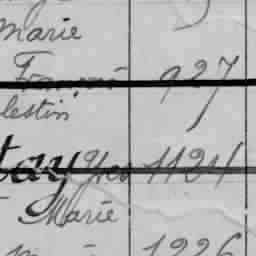 Marie
François 927
lestin
tay Yves 1124
Marie
1226